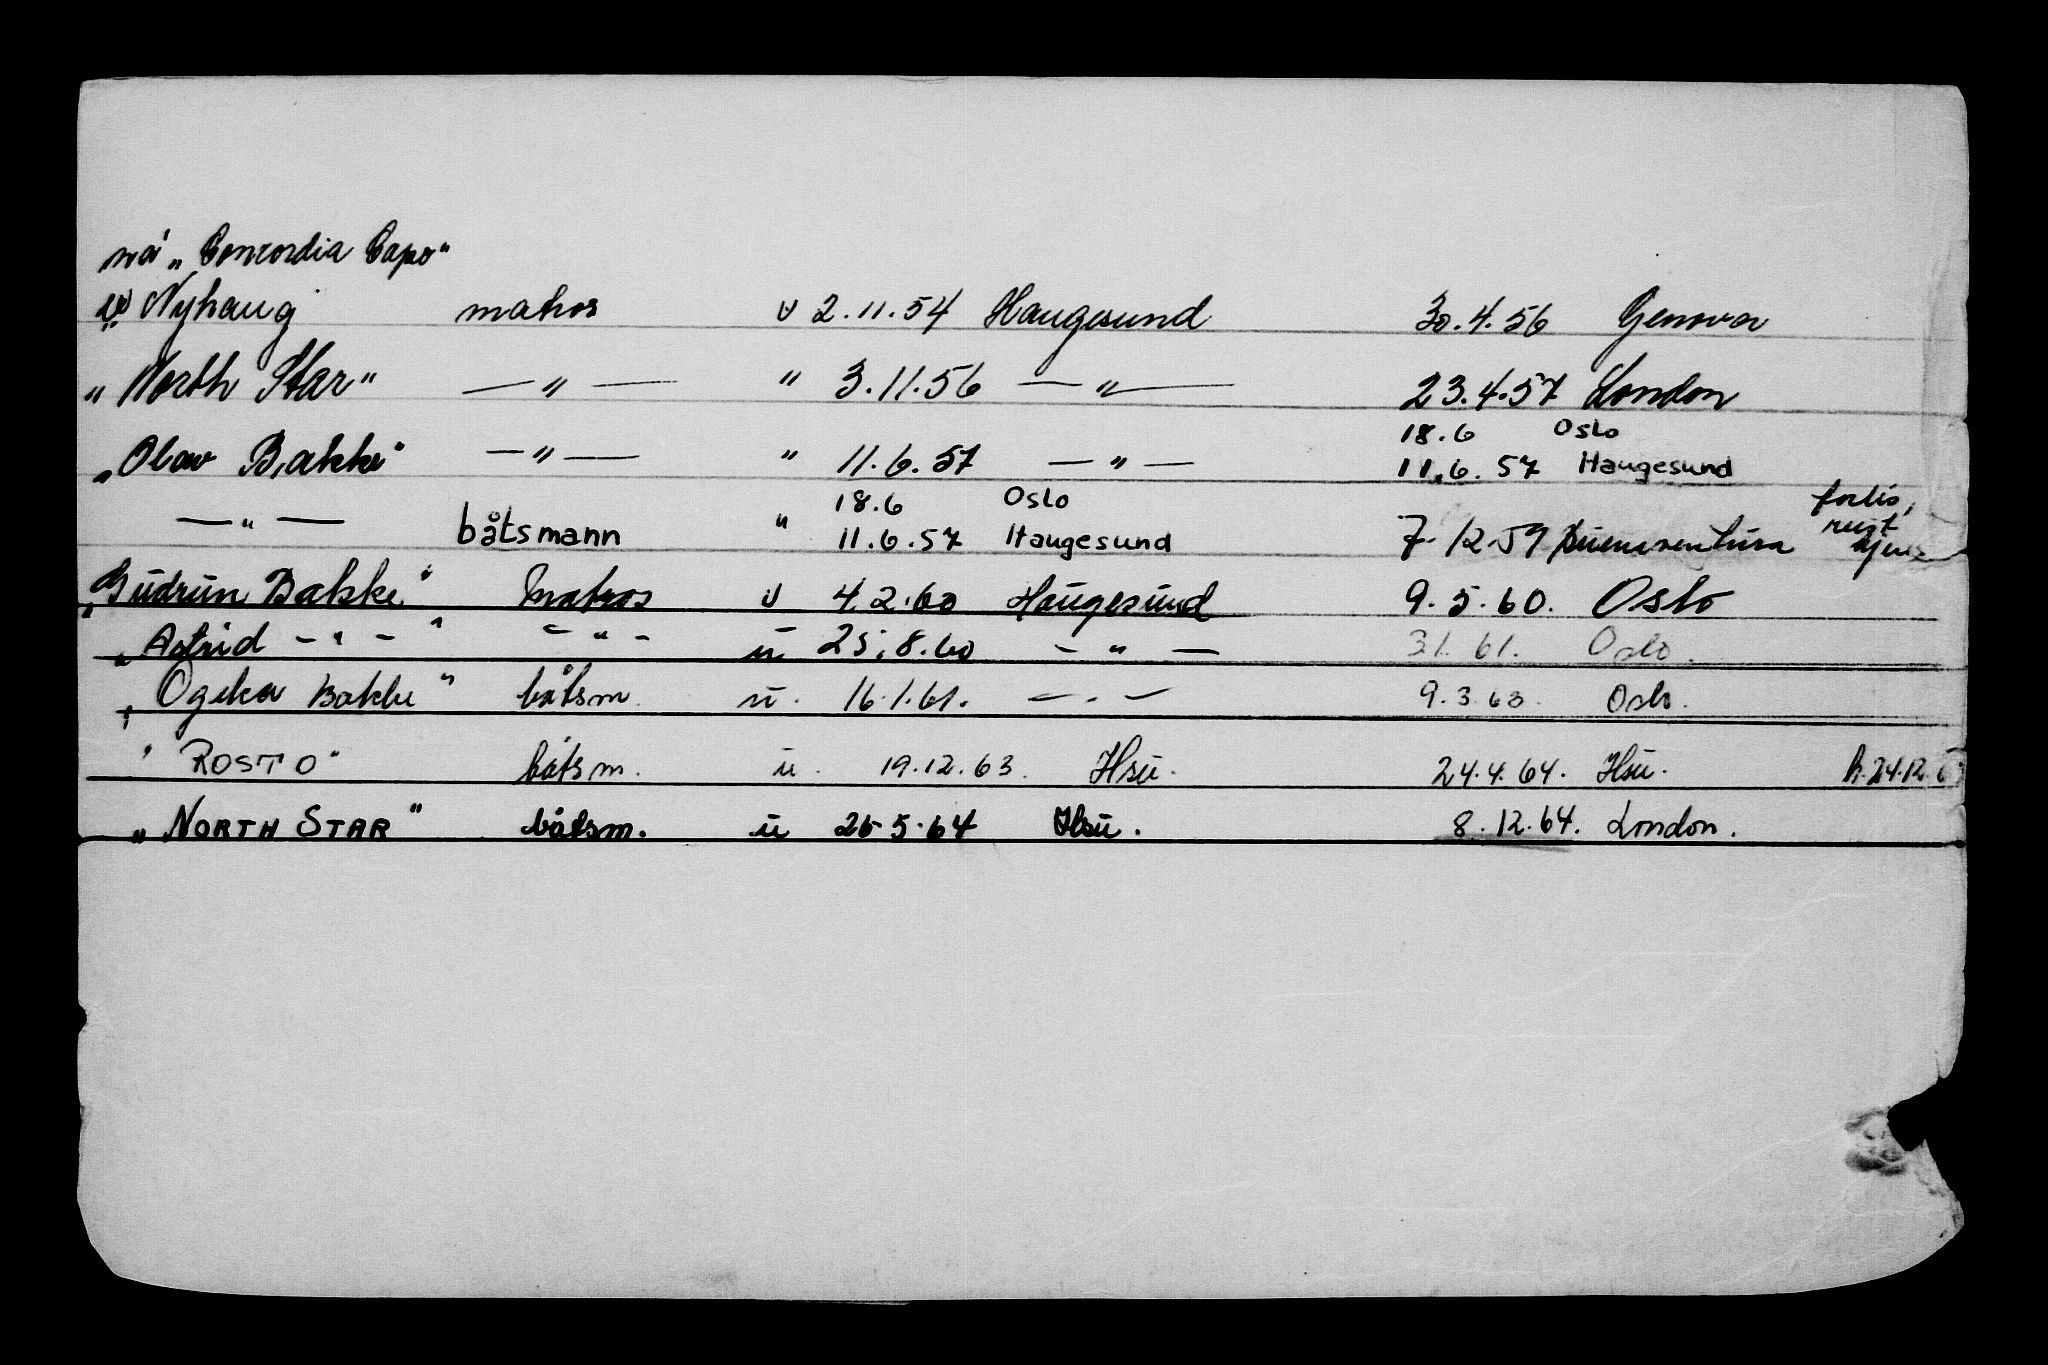 nå „Concordia Capo"
Nyhaug matros u 2.11.54 Haugesund 30.4.56 Genova
„North Star" — " — " 3.11.56 — " — 23.4.57 London
18.6 Oslo
„Olav Bakke" — " — " 11.6.57 — " — 11.6.57 Haugesund
18.6 Oslo
— " — båtsmann " 11.6.57 Haugesund 7.12.59 Buenaventura
„Gudrun Bakke" Matros u 4.2.60 Haugesund 9.5.60. Oslo
„Astrid - " - " - " - u 25.8.60 - " - 3.1.61. Oslo.
„Ogeka Bakke" båtsm. u. 16.1.61. - " - 9.3.63. Oslo.
" ROSTO" båtsm. u. 19.12.63. Hsu. 24.4.64. Hsu.
„NORTH STAR" båtsm. u 26.5.64 Hsu. 8.12.64. London.